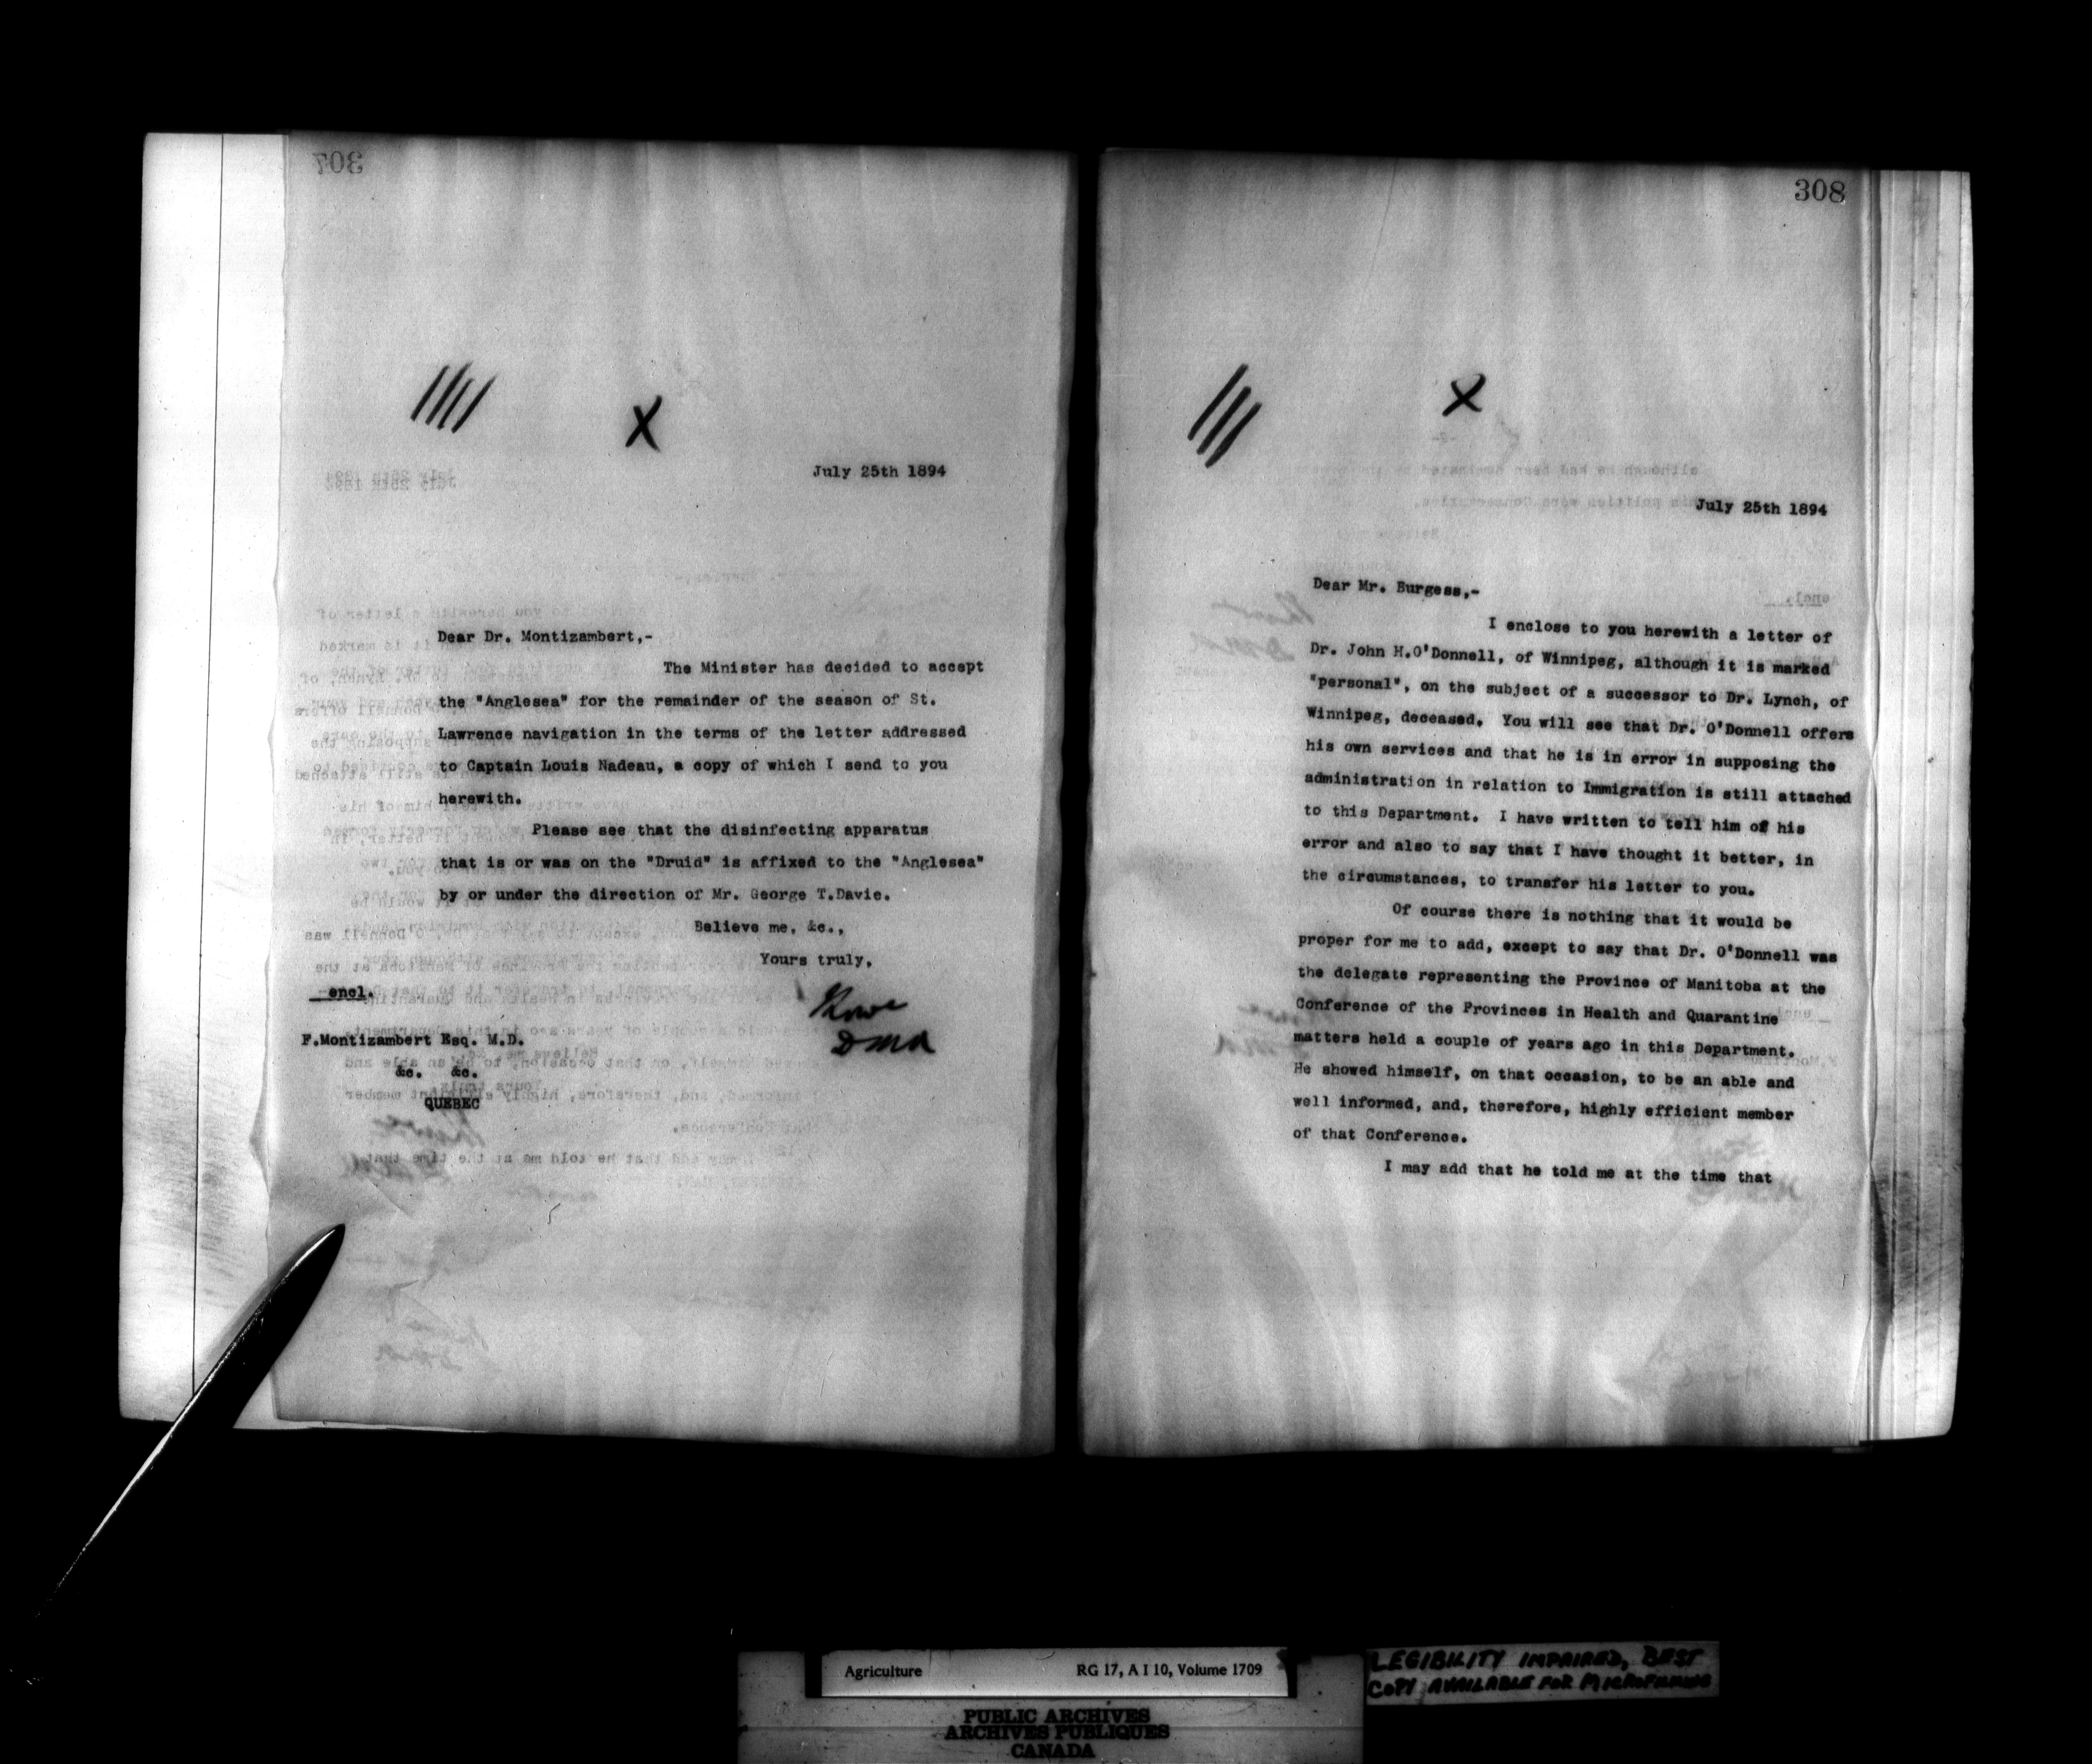 307
July 25th 1894
Dear Dr. Montizambert,-
The Minister has decided to accept
the "Anglesea" for the remainder of the season of St.
Lawrence navigation in the terms of the letter addressed
to Captain Louis Nadeau, a copy of which I send to you
herewith.
Please see that the disinfecting apparatus
that is or was on the "Druid" is affixed to the "Anglesea"
by or under the direction of Mr. George T.Davie.
Believe me, &c.,
Yours truly,
encl.
DMA
F.Montizambert Esq. M.D.
&c. &c.
QUEBEC
308
July 25th 1894
Dear Mr. Burgess,-
I enclose to you herewith a letter of
Dr. John H.O'Donnell, of Winnipeg, although it is marked
"personal", on the subject of a successor to Dr. Lynch, of
Winnipeg, deceased. You will see that Dr. O'Donnell offers
his own services and that he is in error in supposing the
administration in relation to Immigration is still attached
to this Department. I have written to tell him of his
error and also to say that I have thought it better, in
the circumstances, to transfer his letter to you.
Of course there is nothing that it would be
proper for me to add, except to say that Dr. O'Donnell was
the delegate representing the Province of Manitoba at the
Conference of the Provinces in Health and Quarantine
matters held a couple of years ago in this Department.
He showed himself, on that occasion, to be an able and
well informed, and, therefore, highly efficient member
of that Conference.
I may add that he told me at the time that
Agriculture RG 17, A I 10, Volume 1709
LEGIBILITY IMPAIRED, BEST
COPY AVAILABLE FOR MICROFILMING
PUBLIC ARCHIVES
ARCHIVES PUBLIQUES
CANADA